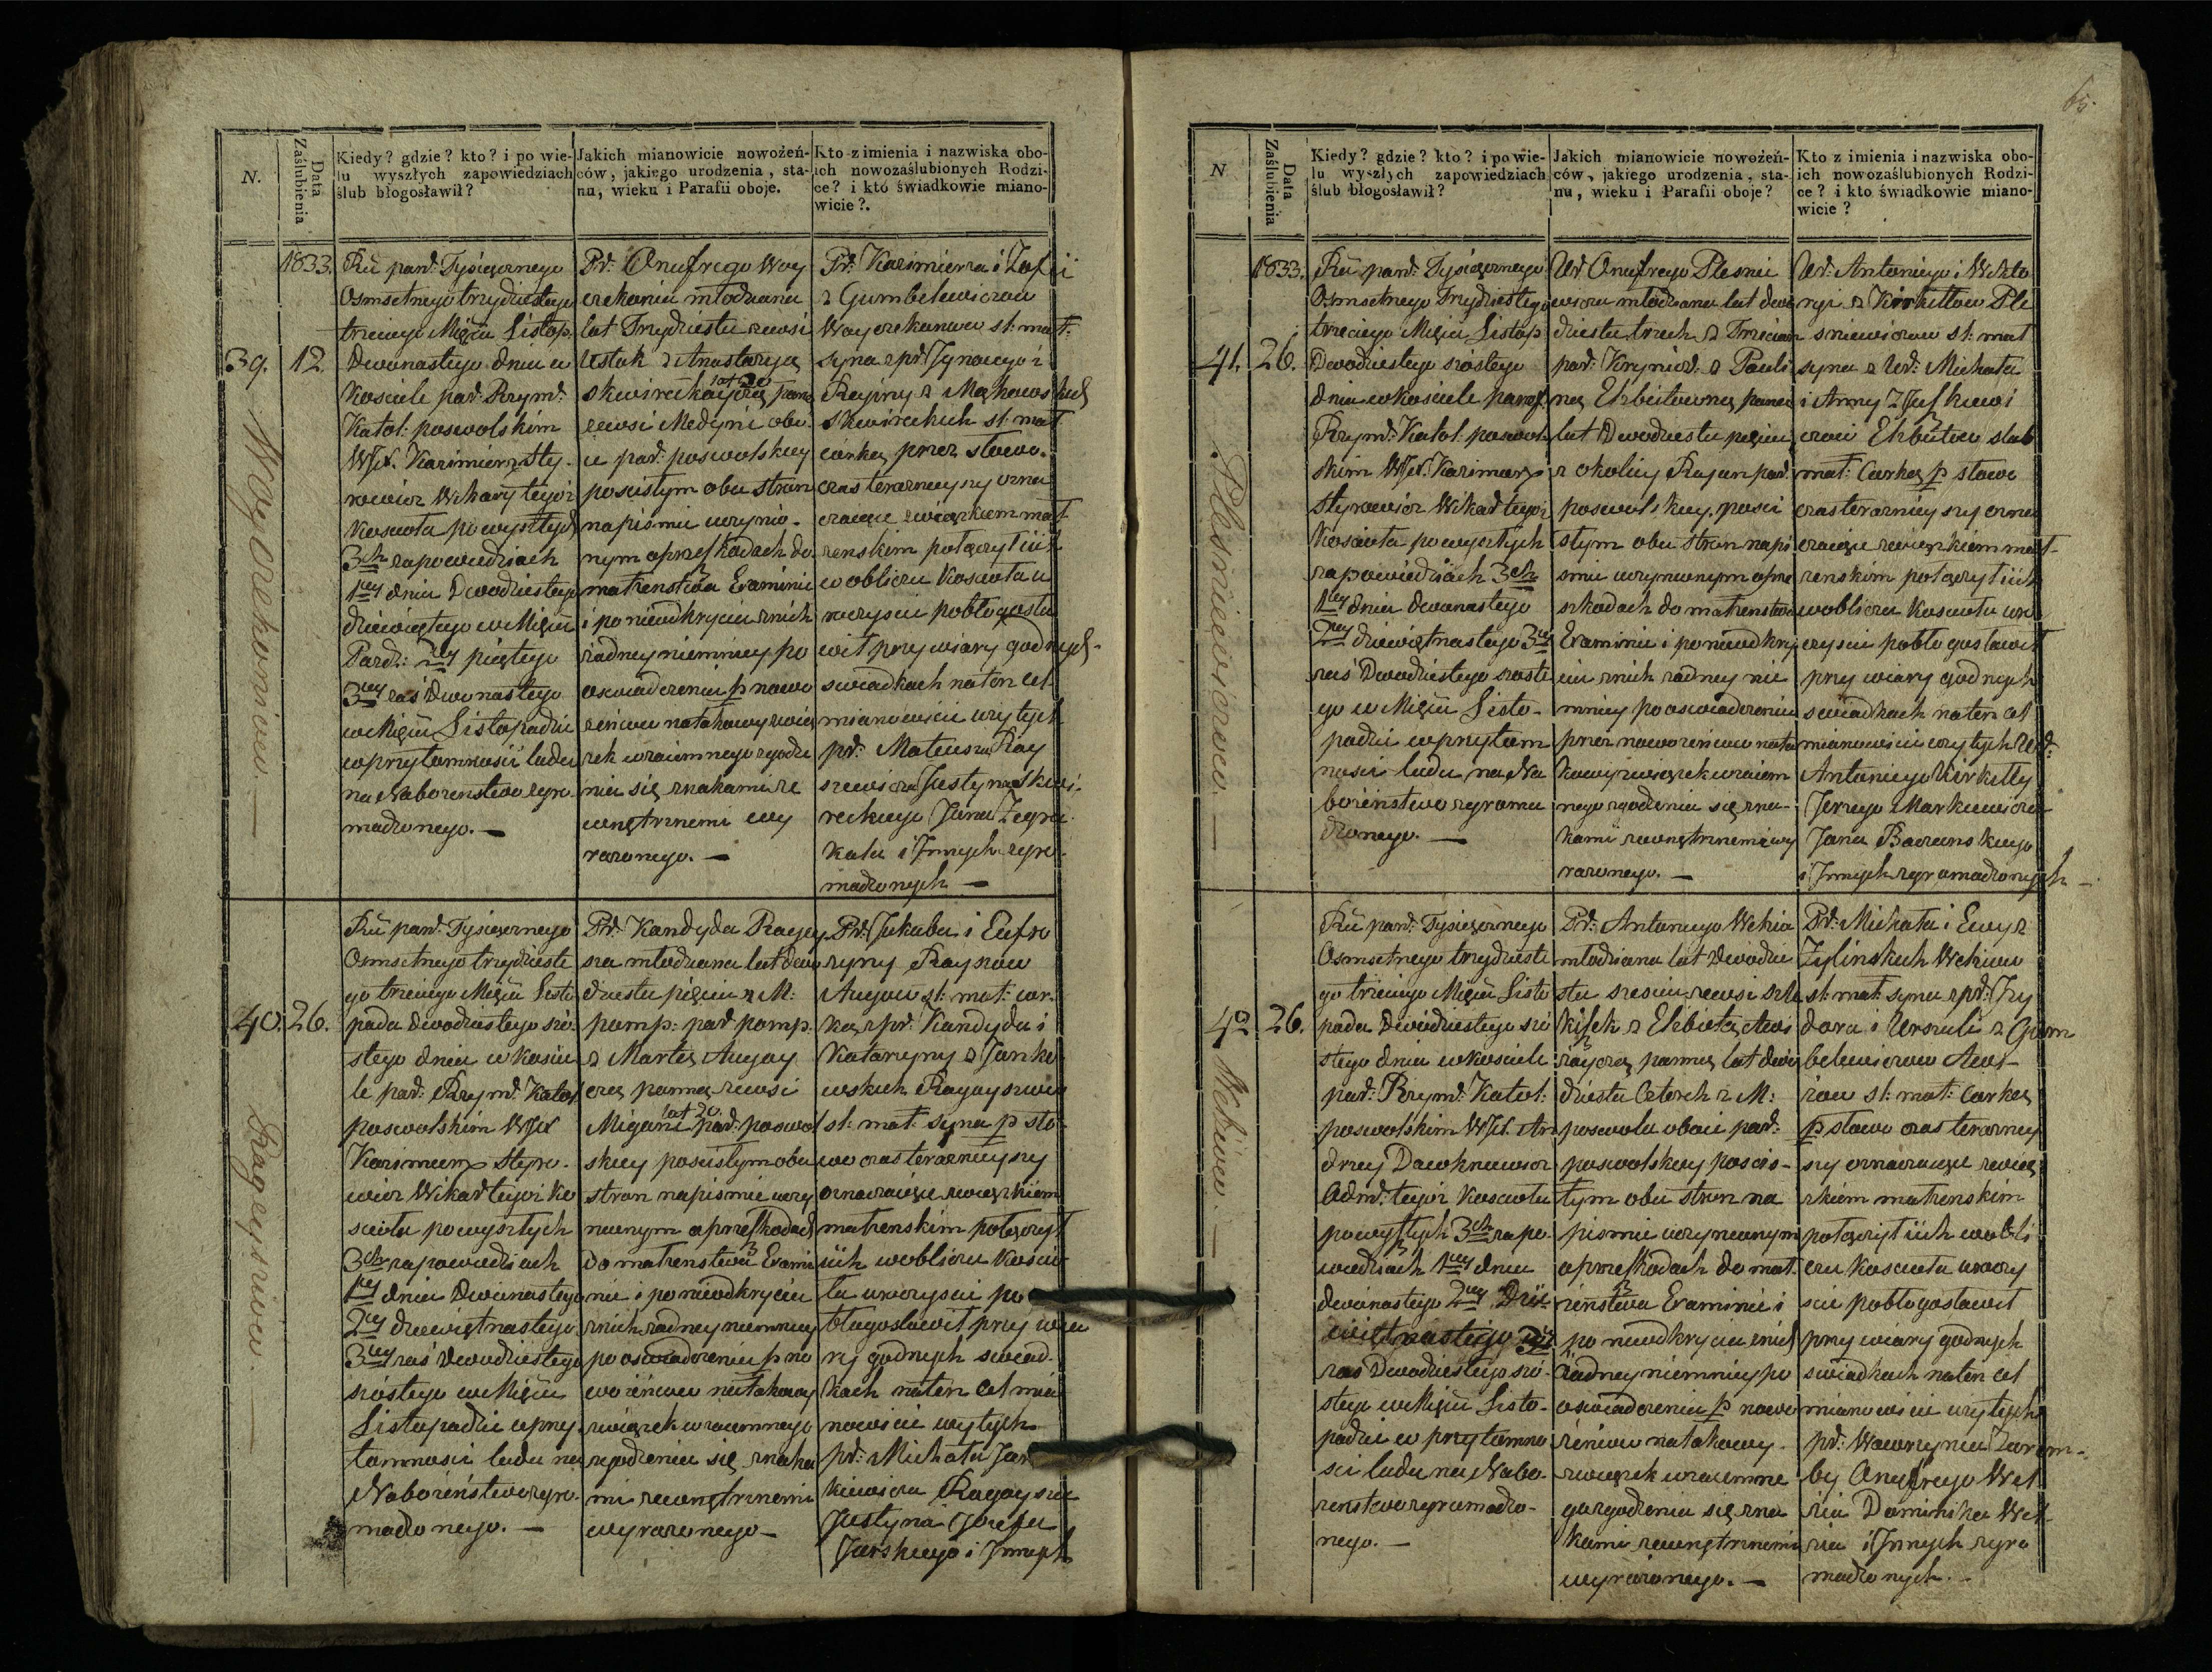 N.
Data Zaślubienia
Kiedy? gdzie? kto? i po wie-
lu wyszłych zapowiedziach
ślub błogosławił?
Jakich mianowicie nowożeń-
ców, jakiego urodzenia, sta-
nu, wieku i Parafii oboje.
Kto z imienia i nazwiska obo-
ich nowozaślubionych Rodzi-
ce? i kto świadkowie miano-
wicie?.
39.
1833.
12.
Roku pań: Tysięcznego
Osmsetnego trzydziestego
trzeciego Mięsią Listop:
Dwónastego dnia w
Kosciele par: Rzym:
Katol: poswolskim
WJX. Kazimierz Sty-
rowicz Wikary tegoż
Koscioła po wyszłych
3ch zapowiedziach
1ey dnia Dwódziestego
dziewiętego w Mięsiū
Pazd: 2ey piętego
3ey zaś Dwónastego
w Mięsiū Listopadzie
w przytomności ludu
na Nabożenstwo zgro-
madzonego. —
Pr: Onufrego Woy
czekania młodziana
lat Trzydziestu zewsi
Ustuk z Anastazyą
skwireckaÿczą lat 20 panną
zewsi Medyni obo-
ie par: poswolskiey
poscisłym obu stron
napismie uczynio-
nym oprzeszkodach do
małżenstwa Examinie
i po nieodkryciu znich
żadney niemniey po
oswiadczeniu p nowo
żeńcow natakowy zwią
zek wzaiemnego zgodze
nia się znakami ze
wnętrznemi wy
rażonego. —
Pr: Kazimierza i Zofii
z Gumbelewiczow
Woyczekanow sł: mał:
syna zpr: Jgnacego i
Reginy z Mackowskich
Skwireckich sł: mał
córką przez słowo.
czas teraznieyszy ozna
czaiące związkiem mał
żenskim połączył iich
w obliczu Koscioła u
roczyscie pobłogosła
wił przy wiary godnych
swiadkach naten cel
mianowicie użytych
pr: Mateusza Ray
szewicza Justyna Skwi-
reckiego Jana Zegra
kala i Jnnych zgro-
madzonych —
Woyczekaniow. —
40.
26.
Roku pań: Tysięcznego
Osmsetnego trzydzieste
go trzeciego Mięsią Listo
pada Dwodziestego szó-
stego dnia w Koscie
le par: Rzym: Katol
poswolskim WJX
Kazimierz Styro-
wicz Wikar tegoż Ko
scioła po wyszłych
3ch zapowiedziach
1ey dnia Dwónastego
2ey dziewiętnastego
3ey zaś Dwodziestego
szóstego w Mięsiū
Listopadzie w przy-
tomnosci ludu na
Nabożeństwo zgro-
madzonego. —
Pr: Kandyda Ragay
sza młodziana lat dwó
dziestu pięciu z M:
pomp: par: pomp:
z Martą Augay
czą panną zewsi
Migani lat 20. par: poswol
skiey poscisłym obu
stron napismie uczy
nionym oprzeszkodach
do małżenstwa Exami
nie i po nieodkryciu
znich żadney niemniey
po oswiadczeniu p no
wożeńcow natakowy
związek wzaiemnego
zgodzenia się znaka
mi zewnętrznemi
wyrażonego —
Pr: Jakuba i Eufro
zyny Rayszow
Augow sł: mał: cor-
ką zpr: Kandyda i
Katarzyny z Janko
wskich Ragayszow
sł: mał: Syna p sło
wo czas teraznieyszy
oznaczaiące związkiem
małżenskim połączył
iich w obliczu Koscio
ła uroczyscie po
błogosławił przy wia
ry godnych swiad-
kach naten cel mia
nowicie użytych
pr: Michała Jan
kiewicza Ragaysza
Justyna Jozefa
Jurskiego i Jnnych
Ragayszow. —
65.
N
Data Zaślubienia
Kiedy? gdzie? kto? i po wie-
lu wyszłych zapowiedziach
ślub błogosławił?
Jakich mianowicie nowożeń-
ców, jakiego urodzenia, sta-
nu, wieku i Parafii oboje?
Kto z imienia i nazwiska obo-
ich nowozaślubionych Rodzi-
ce? i kto świadkowie miano-
wicie?
41.
1833.
26.
Roku pań: Tysięcznego
Osmsetnego Trzydziestego
trzeciego Mięsią Listop
Dwódziestego szóstego
dnia w kosciele paraf:
Rzym: Katol: poswol-
skim WJX: Kazimierz
Styrowicz Wikar tegoż
Koscioła po wyszłych
zapowiedziach 3ch
1ey dnia dwónastego
2ey dziewiętnastego 3ey
zaś Dwódziestego szoste
go w Mięsiū Listo-
padzie w przytom
nosci ludu na Na
bożeństwo zgroma
dzonego. —
Ur: Onufrego Plesnie
wicza młodziana lat dwó
dziestu trzech z Trzeciań
par: Krynicz: z Pauli
ną Elzbietowną panną
lat Dwódziestu pięciu
z okolicy Rajun par:
poswolskiey. posci
słym obu stron napi
smie uczynionym oprze
szkodach do małżenstwa
Examinie i po nieodkry
ciu znich żadney nie
mniey po oswiadczeniu
przez nowożeńcow nata
kowy związek wzaiem
nego zgodzenia się zna-
kami zewnętrznemi wy
rażonego. —
Ur: Antoniego i Wikto
ryi z Kirkiłłow Ple
sniewiczow sł: mał
syna z Ur: Michała
i Anny z Juszkiewi
czow Elzbietow slub
mał: Corką p słowo
czas teraznieyszy ozna
czaiące związkiem mał-
żenskim połączył iich
w obliczu Koscioła uro
czyscie pobłogosławił
przy wiary godnych
swiadkach naten cel
mianowicie użytych Ur:
Antoniego Kirkiłły
Jerzego Markiewicza
Jana Baczunskiego
i Jnnych zgromadzonych —
Plesniewiczow. —
42
26.
Roku pań: Tysięcznego
Osmsetnego trzydzieste
go trzeciego Mięsią Listo
pada Dwódziestego szó
stego dnia w kosciele
par: Rzym: Katol:
poswolskim WJX. An
drzey Dowkniewicz
Adm: tegoż Koscioła
po wyszłych 3ch zapo-
wiedziach 1ey dnia
dwónastego 2ey Dzie
więtnastego 3ey
zaś Dwodziestego szó-
stego w Mięsiū Listo-
padzie w przytomno
sci ludu na Nabo-
żenstwo zgromadzo-
nego. —
Pr: Antoniego Wekia
młodziana lat Dwódzie
stu szesciu zewsi
z Elzbietą Awi
żaÿczą panną lat dwó
dziestu Czterech z M:
poswola oboie par:
poswolskiey poscis-
łym obu stron na
pismie uczynionym
oprzeszkodach do mał
żeństwa Examinie i
po nieodkryciu znich
żadney niemniey po
oswiadczeniu p nowo
żeńcow natakowy-
związek wzaiemne
go zgodzenia się zna
kami zewnętrznemi
wyrażonego. —
Pr: Michała i Ewy z
Zylinskich Wekiow
sł: mał: syna z pr: Jzy
dora i Urszuli z Gum
belewiczow Awi-
żow sł: mał: Corką
p słowo czas teraźniey
szy oznaczaiące zwią
zkiem małżenskim
połączył iich w obli
czu Koscioła uroczy
scie pobłogosławił
przy wiary godnych
swiadkach naten cel
mianowicie użytych
pr: Wawrzynca Zarem-
by Onufrego Wek
Dominika Wek-
i Jnnych zgro
madzonych. —
Wekiow. —